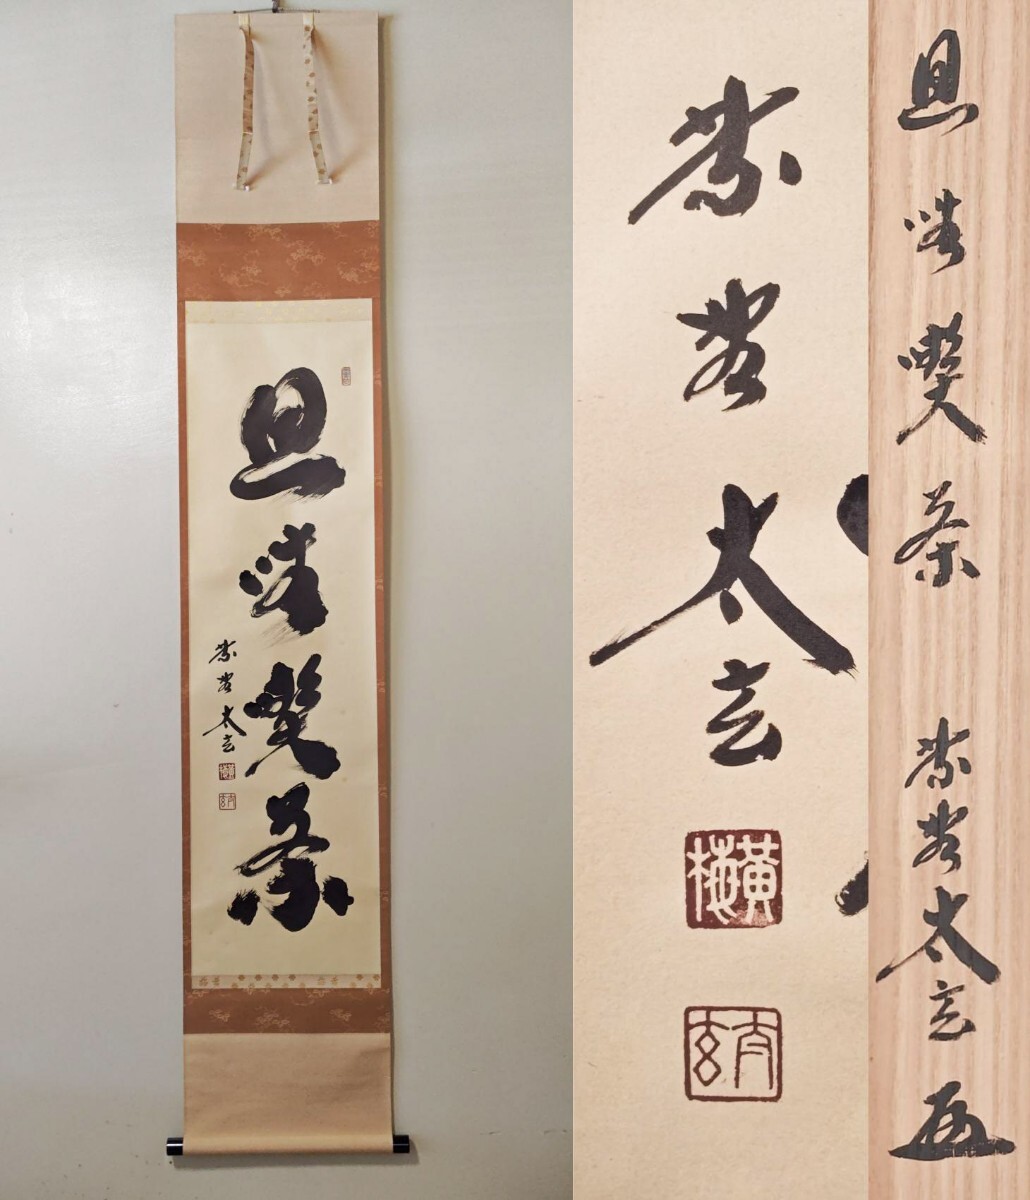 且坐喫茶
紫野太玄
紫野太玄
黄梅
太玄
且坐喫茶 紫野太玄